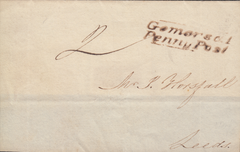 2
Gomersal
Penny Post
Mr J. Horsfall
Leeds